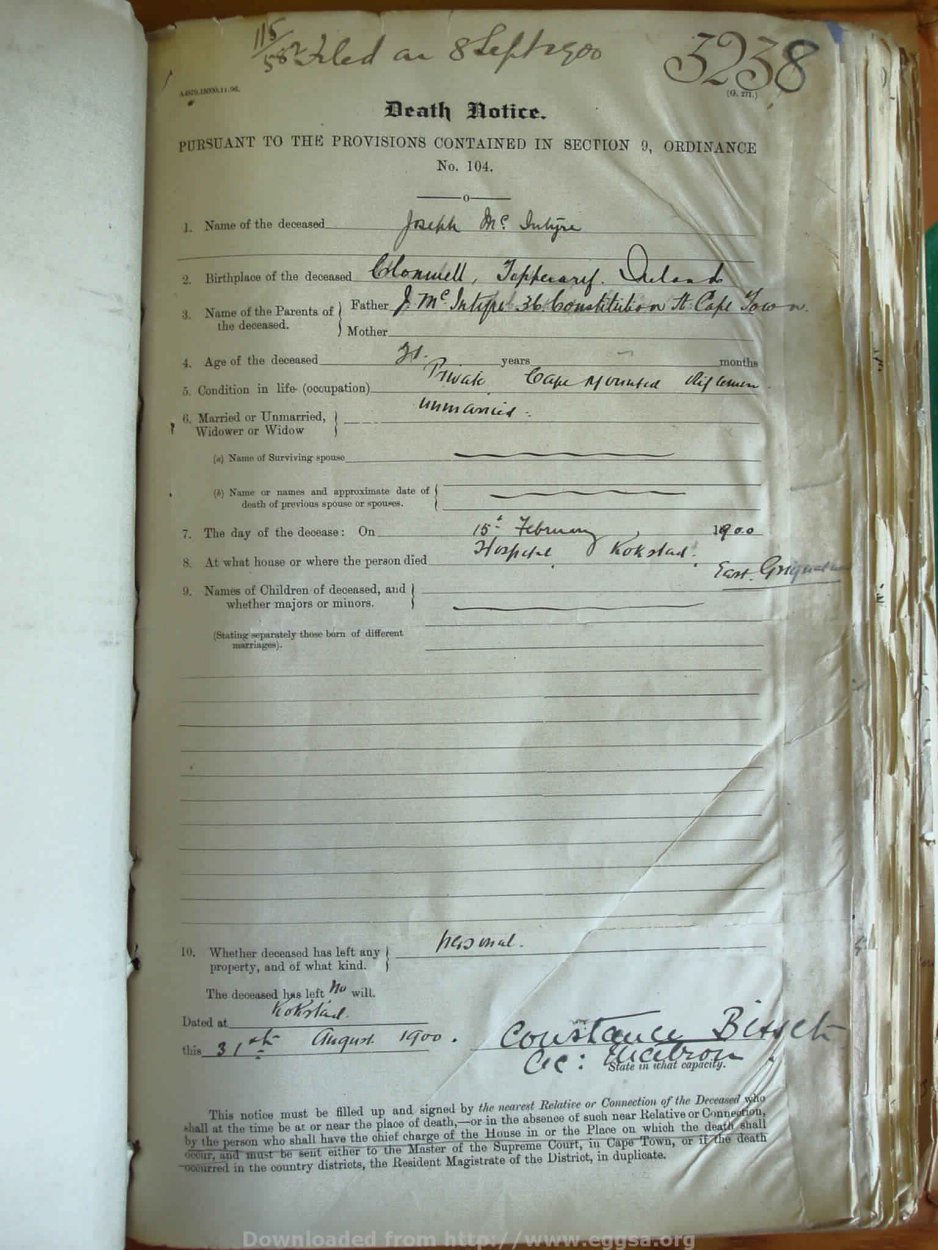 115/582 Filed on 8 Sept 1900
3238
A4879.15000.11.96.
(G. 271.)
Death Notice.
PURSUANT TO THE PROVISIONS CONTAINED IN SECTION 9, ORDINANCE
No. 104.
1. Name of the deceased Joseph Mc Intyre
2. Birthplace of the deceased Clonmell, Tipperary. Ireland
3. Name of the Parents of the deceased. Father J. McIntyre 36 Constitution St Cape Town.
Mother
4. Age of the deceased 21. years months
5. Condition in life (occupation) Private Cape Mounted Riflemen.
6. Married or Unmarried, Widower or Widow unmarried.
(a) Name of Surviving spouse
(b) Name or names and approximate date of
death of previous spouse or spouses.
7. The day of the decease: On 15th February 1900
8. At what house or where the person died Hospital, Kokstad.
East Griqualand
9. Names of Children of deceased, and
whether majors or minors.
(Stating separately those born of different
marriages).
10. Whether deceased has left any
property, and of what kind. personal.
The deceased has left no will.
Dated at Kokstad.
this 31st August 1900. Constance Bisset
Ac: Matron
State in what capacity.
This notice must be filled up and signed by the nearest Relative or Connection of the Deceased who
shall at the time be at or near the place of death,—or in the absence of such near Relative or Connection,
by the person who shall have the chief charge of the House in or the Place on which the death shall
occur, and must be sent either to the Master of the Supreme Court, in Cape Town, or if the death
occurred in the country districts, the Resident Magistrate of the District, in duplicate.
Downloaded from http://www.eggsa.org